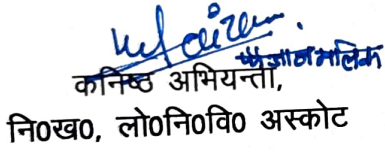 कनिष्ठ अभियन्ता,
नि0ख0, लो0नि0वि0 अस्कोट